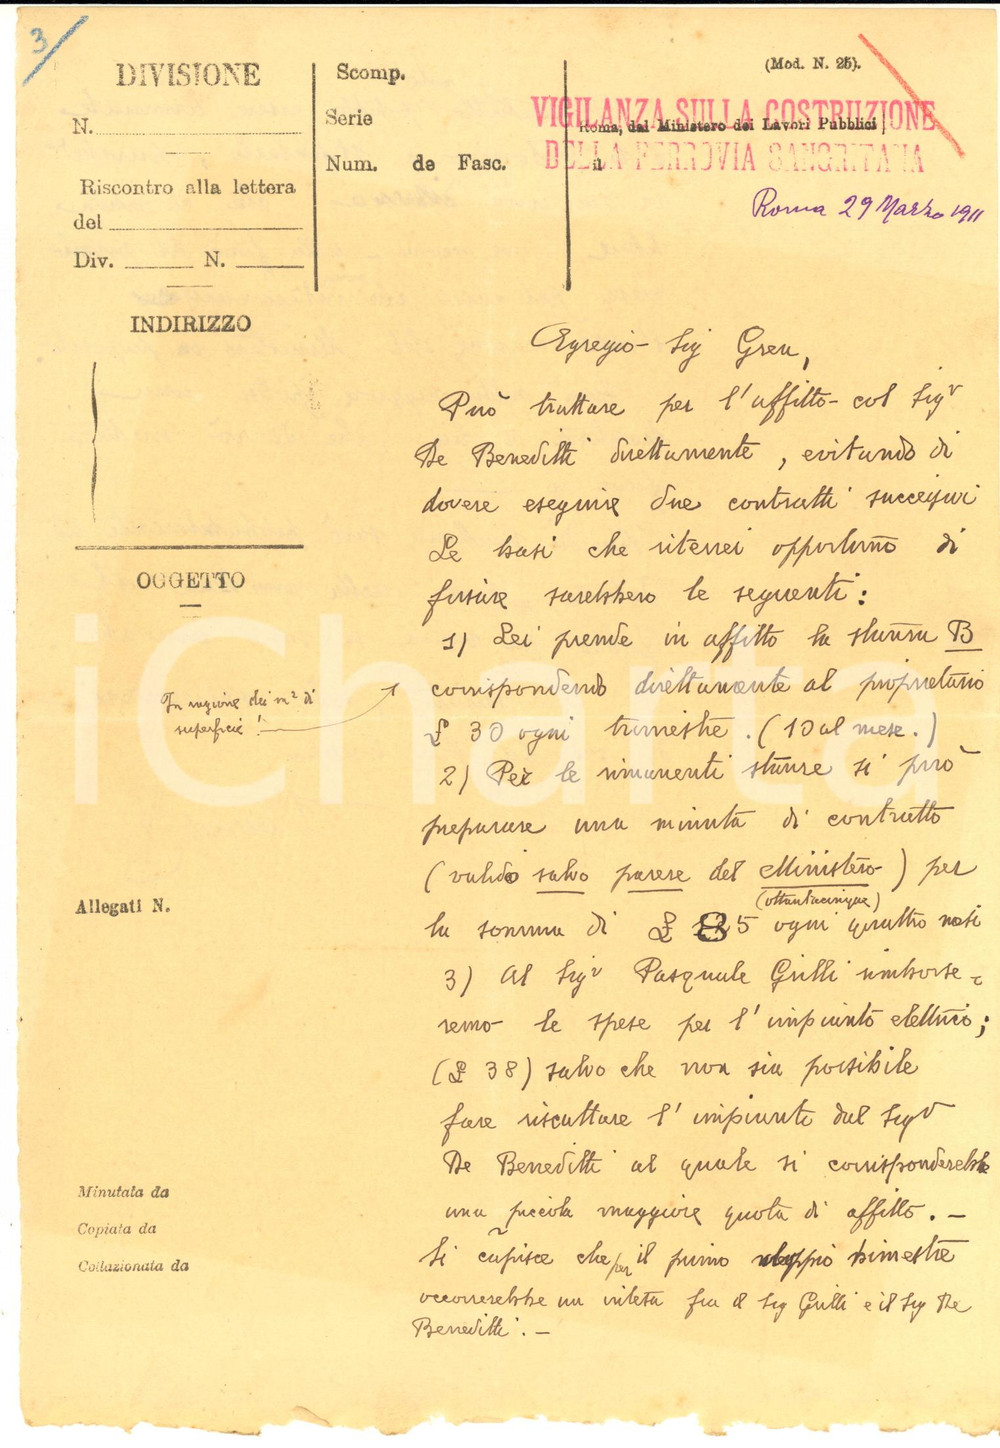 3
DIVISIONE
N.
Riscontro alla lettera
del
Div. N.
INDIRIZZO
Scomp.
Serie
Num. de Fasc.
(Mod. N. 25).
VIGILANZA SULLA COSTRUZIONE
Roma, dal Ministero dei Lavori Pubblici
DELLA FERROVIA SANGRITANA
il
Roma 29 Marzo 1911
Egregio Sig Green,
Può trattare per l'affitto col Sigr
De Beneditti direttamente, evitando di
dovere eseguire due contratti successivi
Le basi che riterrei opportuno di
fissare sarebbero le seguenti:
1) Lei prende in affitto la stanza B
corrispondendo direttamente al proprietario
£ 30 ogni trimestre. (10 al mese.)
2) Per le rimanenti stanze si può
preparare una minuta di contratto
(valido salvo parere del Ministero) per
(ottantacinque)
la somma di £ 85 ogni quattro mesi
3) Al Sigr Pasquale Grilli rimborse-
remo le spese per l'impianto elettrico;
(£ 38) salvo che non sia possibile
fare riscattare l'impianto dal Sigr
De Beneditti al quale si corrisponderebbe
una piccola maggiore quota di affitto. —
Si capisce che per il primo bimestre
occorrerebbe un intesa fra il Sig Grilli e il Sig De
Beneditti. —
OGGETTO
In ragione dei m² di
superficie!
Allegati N.
Minutata da
Copiata da
Collazionata da
iCharta